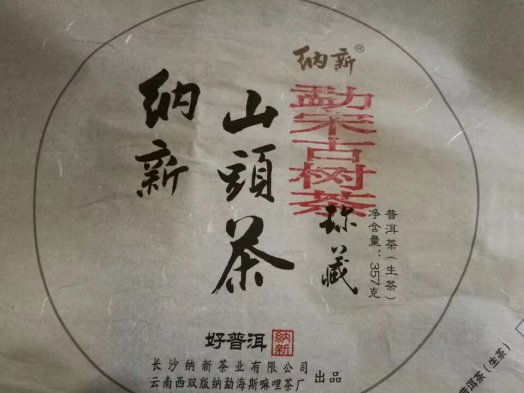 纳新®
勐宋古树茶
珍藏
普洱茶(生茶)
净含量:357克
山頭茶
纳新
好普洱 纳新
长沙纳新茶业有限公司
云南西双版纳勐海斯嘛哩茶厂 出品
洱茶(生茶)